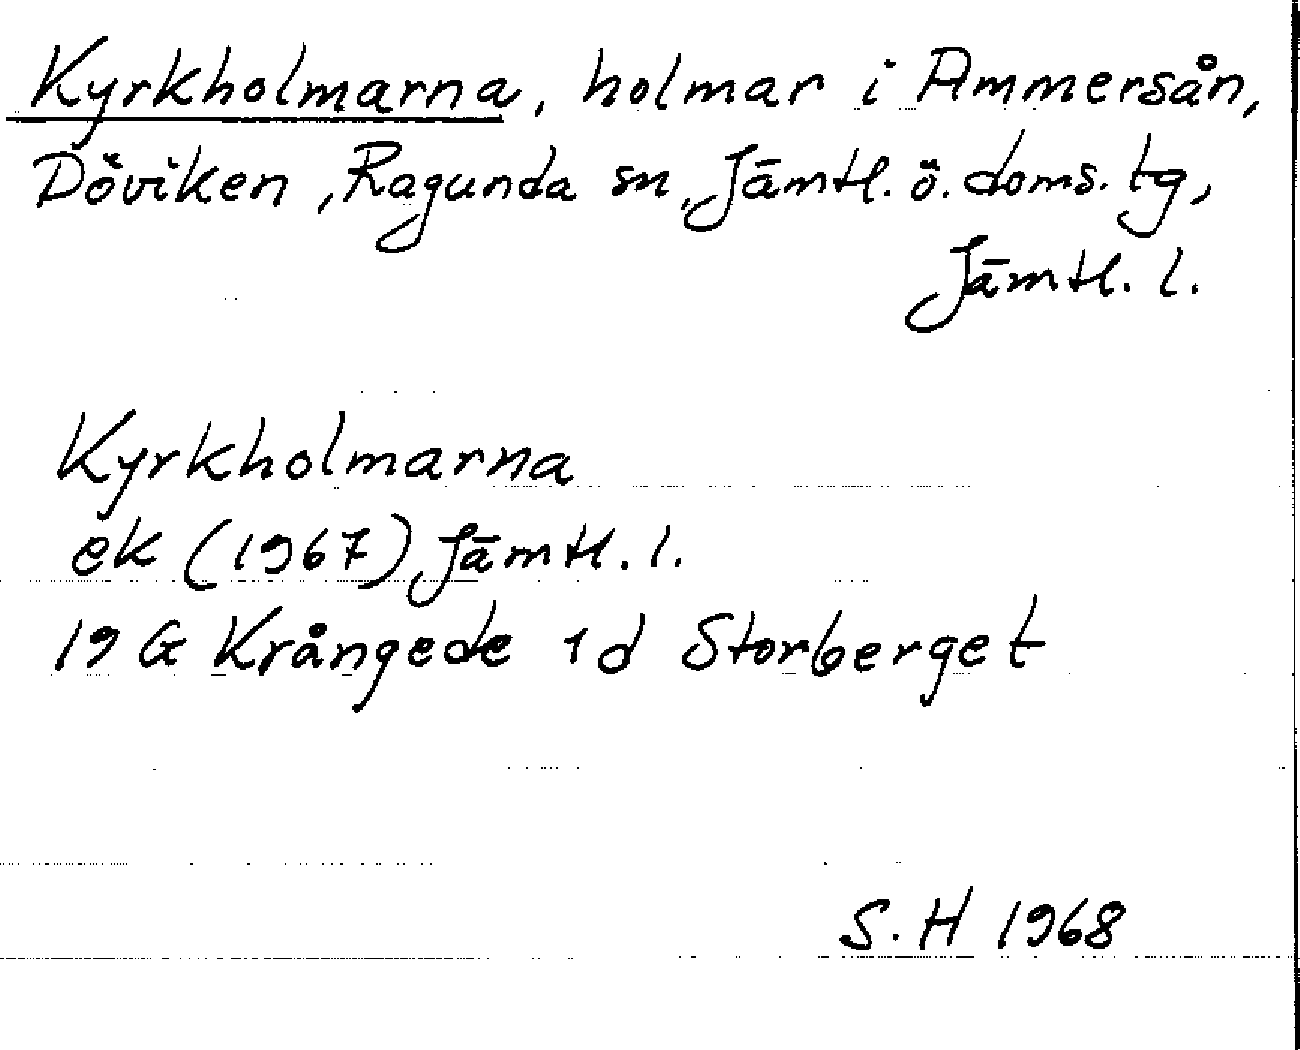 Kyrkholmarna, holmar i Ammersån,
Döviken, Ragunda sn, Jämtl. ö. doms. tg,
Jämtl. l.
Kyrkholmarna
ek (1967) Jämtl. l.
19 G Krångede 1 d Storberget
S. H 1968